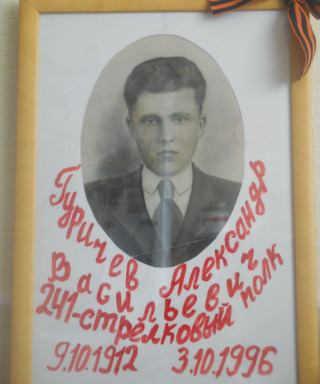 Гуричев Александр
Васильевич
241-стрелковый полк
9.10.1912 3.10.1996